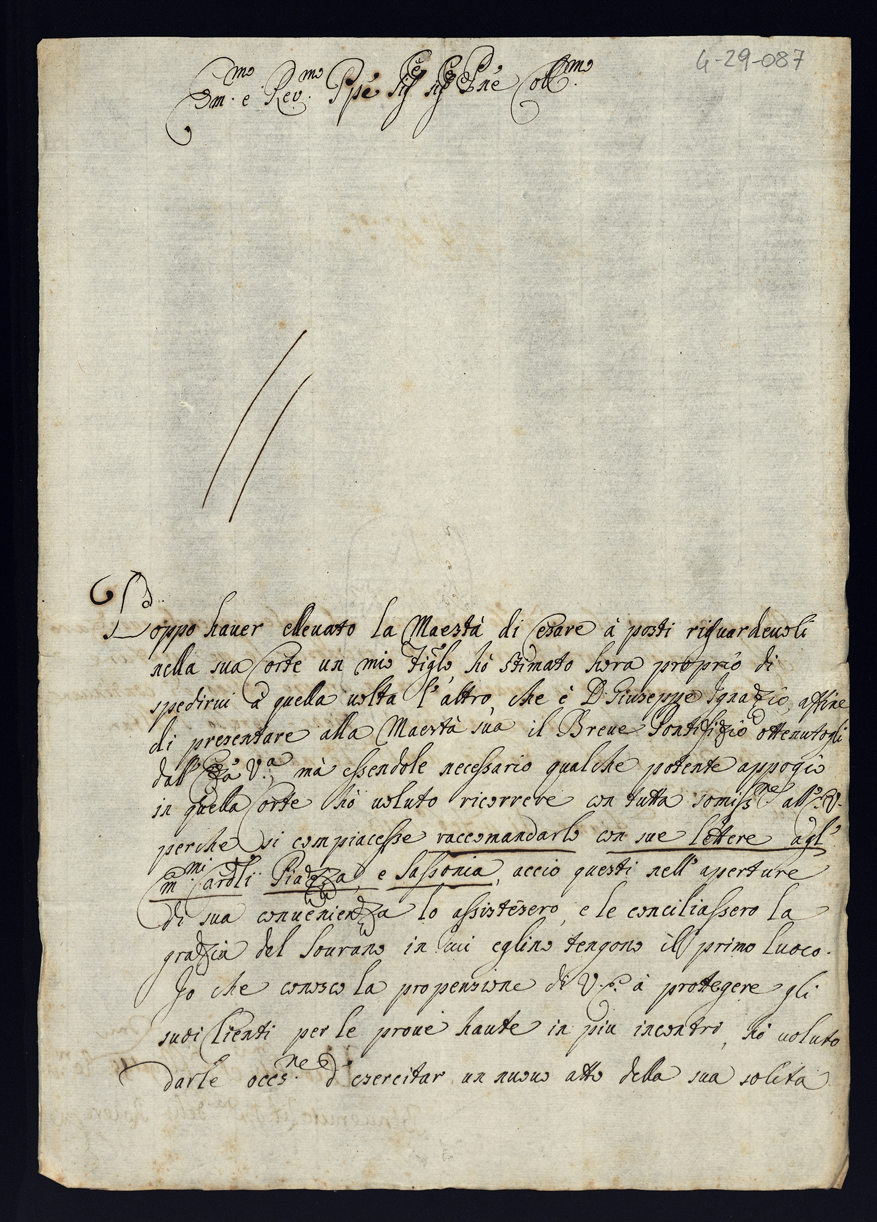 4-29-087
Em.mo e Rev.mo Ppē Sig.r Sig.r Pne Coll.mo
Doppo hauer elleuato la Maestà di Cesare à posti riguardeuoli
nella sua Corte un mio Figlo hò stimato hora proprio di
spedirui à quella uolta l'altro, che è D. Giuseppe Ignazio, affine
di presentare alla Maestà sua il Breue Pontifizio ottenutogli
dall' V.a mà essendole necessario qualche potente appogio
in quella Corte hò uoluto ricorrere con tutta somiss.ne all' V.
perche si compiacesse raccomandarlo con sue lettere agl'
Em.mi Cardli Piazza, e Sassonia, accio questi nell'aperture
di sua conuenienza lo assistesero, e le conciliassero la
grazia del Sourano in cui eglino tengono il primo luoco.
Io che conosco la propensione di V. E. à prottegere gli
suoi Clienti per le proue haute in piu incontri, hò uoluto
darle occs.ne d'esercitar un nuouo atto della sua solita